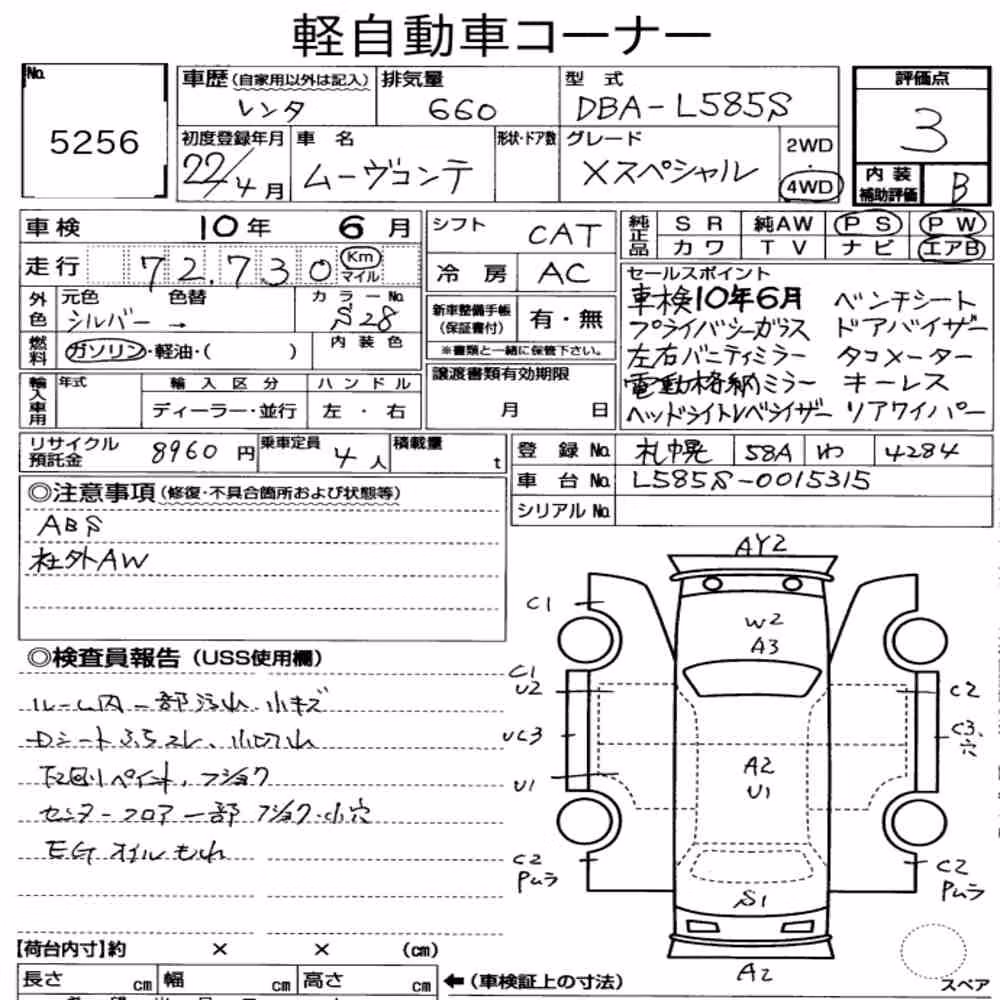 軽自動車コーナー
No. 5256
車歴 (自家用以外は記入) レンタ
排気量 660
型 式 DBA-L585S
評価点 3
初度登録年月 22/4月
車 名 ムーヴコンテ
形状・ドア数
グレード Xスペシャル
2WD
4WD
内 装 補助評価 B
車検 10年 6月
走行 72,730 Km マイル
外色 元色 シルバー → 色替
カラーNo. S28
燃料 ガソリン・軽油・( )
内 装 色
輸入車用 年式
輸 入 区 分
ディーラー・並行
ハ ン ド ル
左 ・ 右
シフト CAT
冷 房 AC
新車整備手帳 (保証書付) 有・無
※書類と一緒に保管下さい。
譲渡書類有効期限
月 日
純正品 S R 純AW P S P W
カ ワ T V ナ ビ エアB
セールスポイント
車検10年6月 ベンチシート
プライバシーガラス ドアバイザー
左右バニティミラー タコメーター
電動格納ミラー キーレス
ヘッドライトレベライザー リアワイパー
リサイクル預託金 8960 円
乗車定員 4 人
積載量 t
登 録 No. 札幌 58A わ 4284
車 台 No. L585S-0015315
シリアル No.
◎注意事項 (修復・不具合箇所および状態等)
ABS
社外AW
◎検査員報告 (USS使用欄)
ルーム内一部汚れ 小キズ
Dシートふちスレ、小凹み
下回りペイント、フショク
センターフロア一部フショク・小穴
EGオイルもれ
AY2
C1
W2
A3
C1
U2
C2
UC3
C3、穴
A2
U1
U1
C2
Pムラ
C2
Pムラ
S1
A2
スペア
【荷台内寸】約 × × (cm)
長さ cm 幅 cm 高さ cm
← (車検証上の寸法)